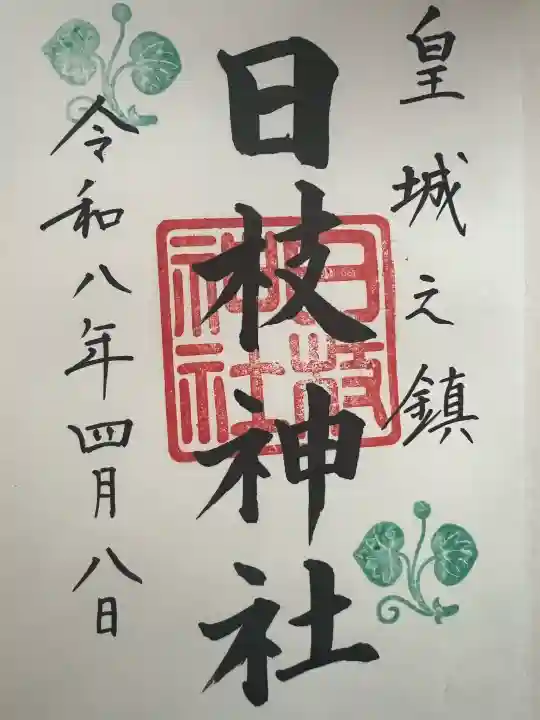 皇城之鎮
日枝神社
日枝神社
令和八年四月八日